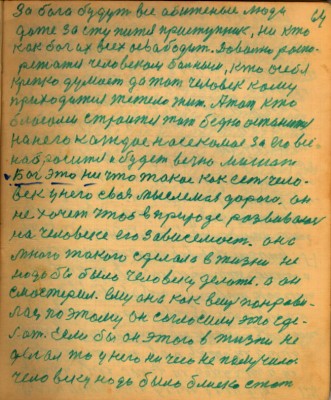 64
За бога будут все обиженые люди
даже заступится приступник, ни кто
как бог их всех освободит. Довольно распо-
ряжатся человеком больным, кто о себя
крепко думает да тот человек кому
приходится тяжело жить. А тот кто
благами строится тот бедно останится
на него каждое насекомае за его всё
набросится и будет вечно мешать
Бог это ни что такое как сам чело-
век у него своя мыслемая дорога. он
не хочет чтоб в природе развивалась
на человеке его зависемост. он
много такого сделало в жизни не
надо бы было человеку делать. а он
смастерил. ему она как ему понрави-
лась поэтому он согласился это сде-
лат. Если бы он этого в жизни не
делал то у него ни чего не получилось
человеку надо было близко стат